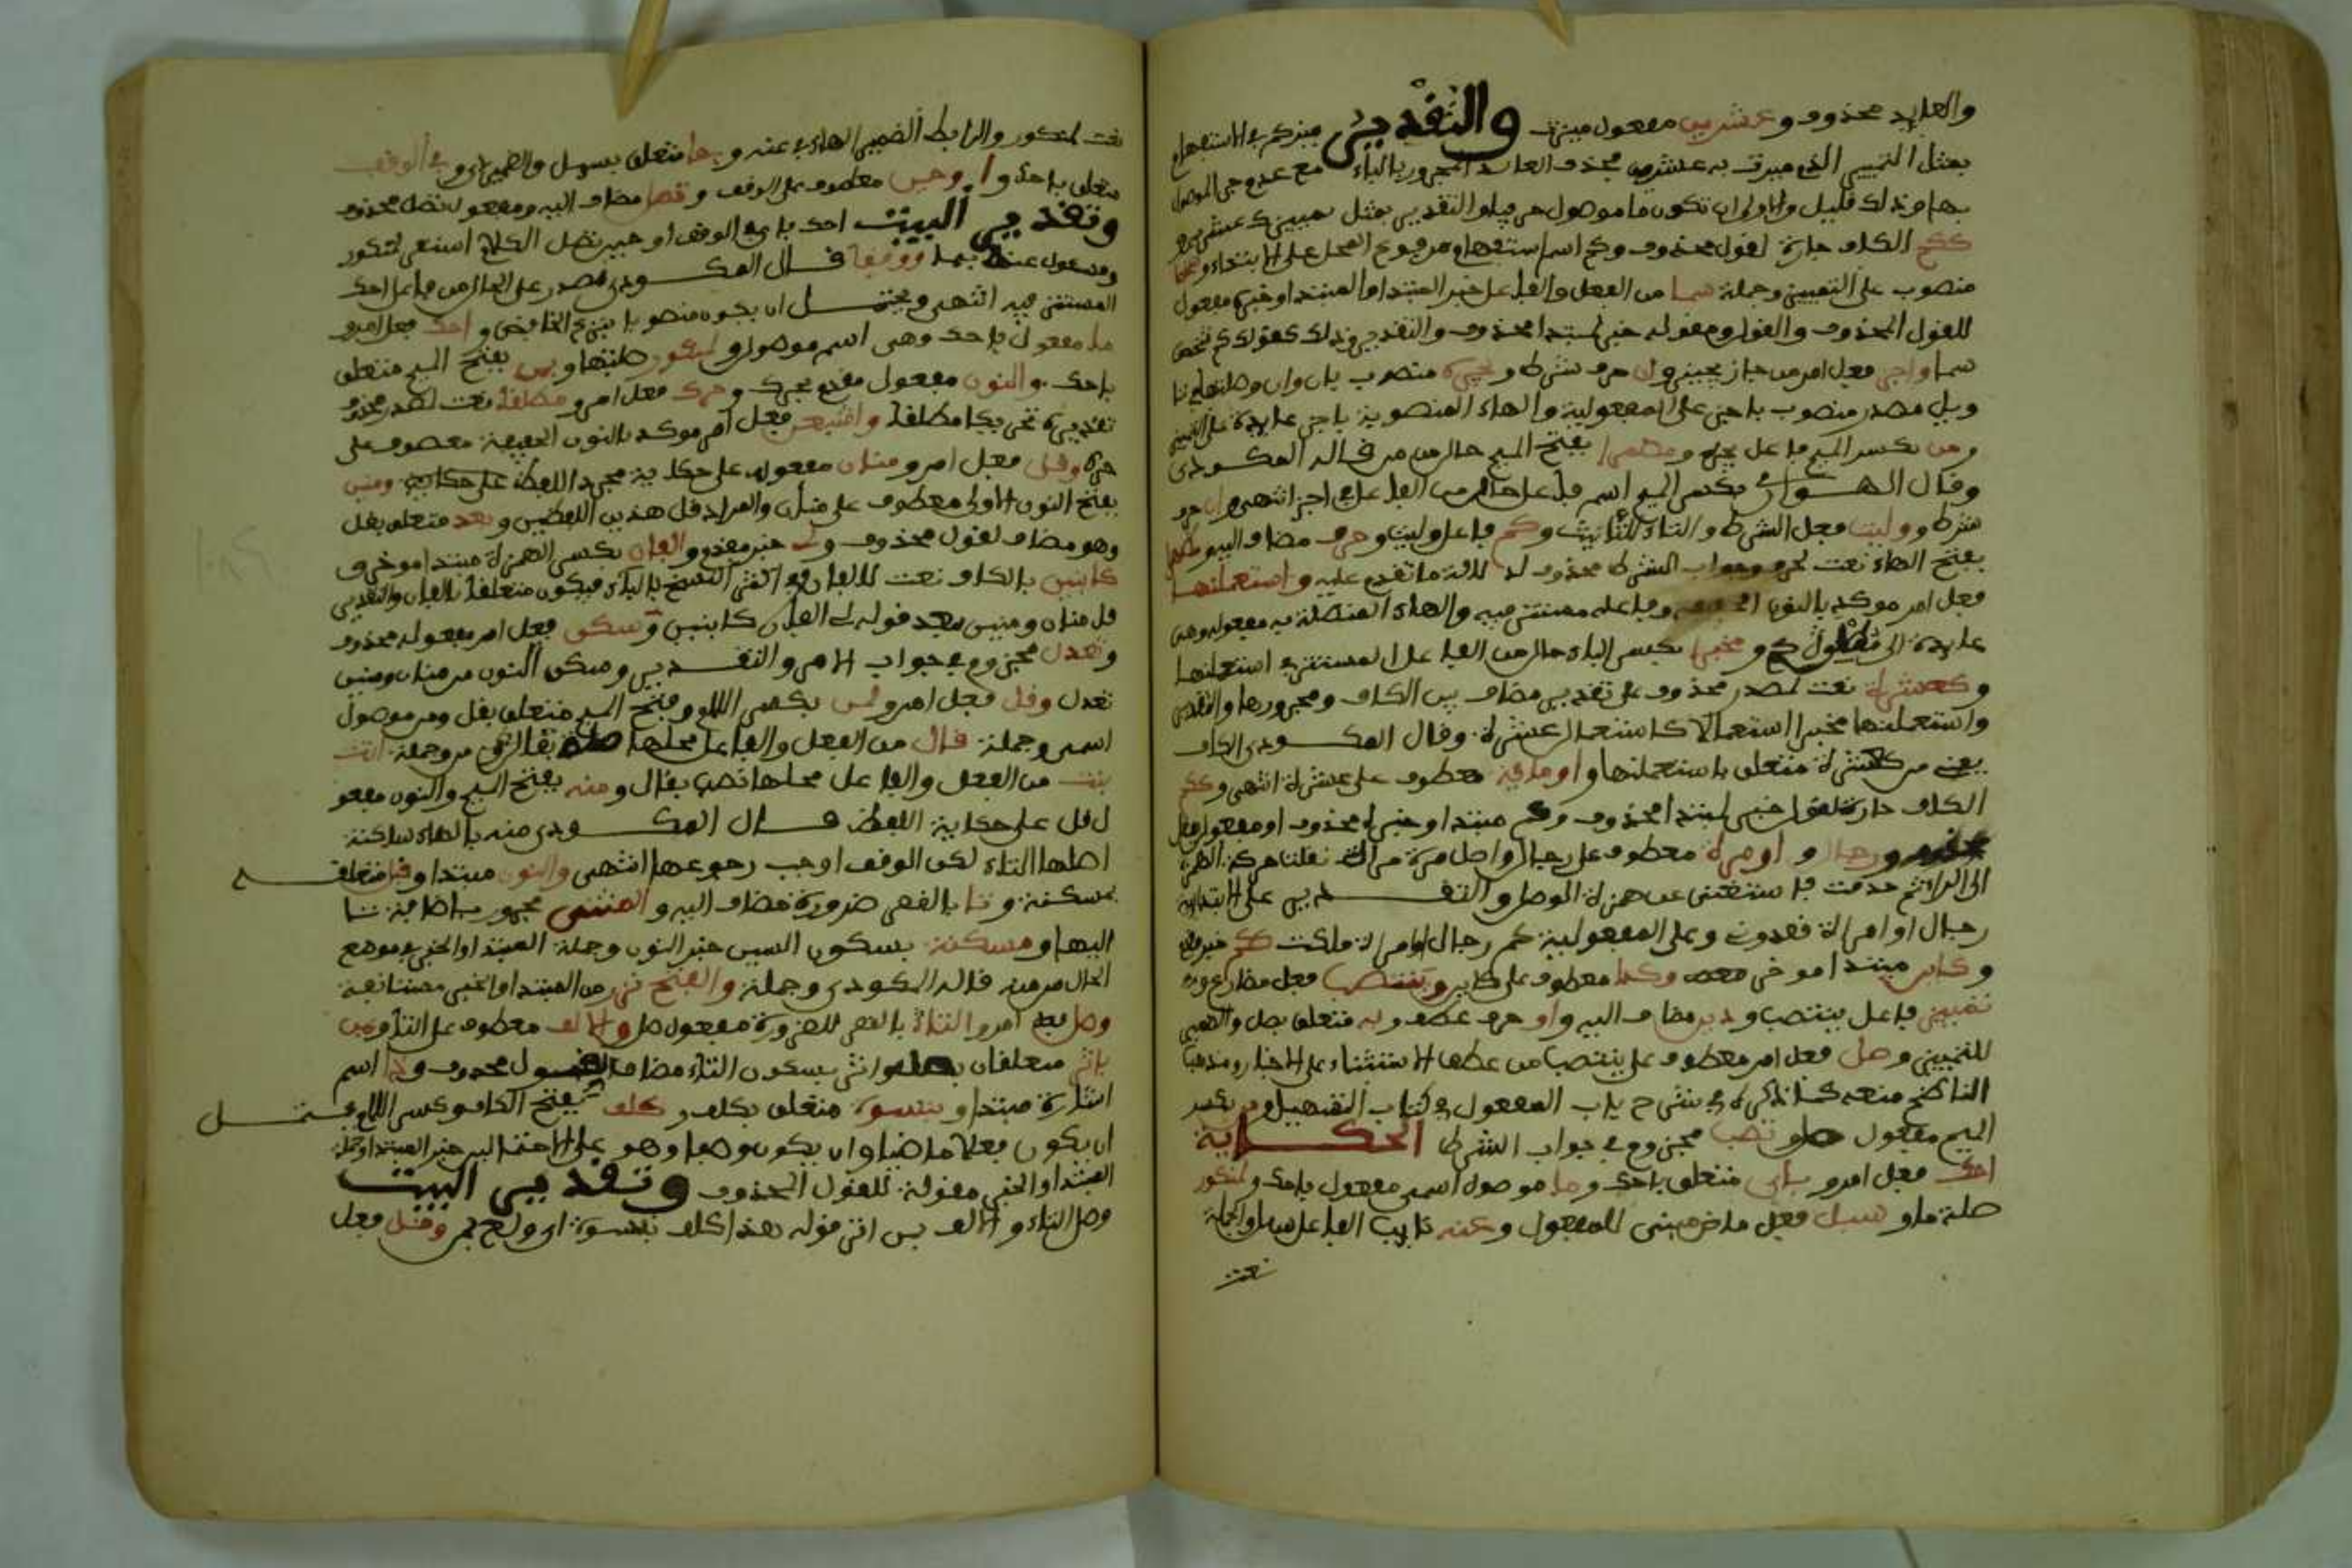 والعايد محذوف وعشرين مفعول ميزت والتقدير ميز كم في الاستفهام
بمثل التمييز الذي ميزت به عشرين فحذف العايد المجرور بالباء مع عدم جر الموصول
بها وذلك قليل والاولى ان تكون ما موصول حرفي والتقدير بمثل تمييزك عشرين
ككم الكاف جارة لقول محذوف وكم اسم استفهام مرفوع المحل على الابتداء وشخصا
منصوب على التمييز وجملة سما من الفعل والفاعل خبر المبتدا والمبتدا وخبره مفعول
للقول المحذوف والقول ومقوله خبر لمبتدا محذوف والتقدير وذلك كقولك كم شخصا
سما واجز فعل امر من جاز يجيز وان حرف شرط وتجره منصوب بان وان وصلتها في تا
ويل مصدر منصوب باجز على المفعولية والهاء المنصوبة باجز عايدة على التمييز
ومن بكسر الميم فاعل تجره ومضمرا بفتح الميم حال من من قاله المكودي
وقال الهواري بكسر الميم اسم فاعل حال من الفاعل في اجز انتهى وان حرف
شرط ووليت فعل الشرط والتاء للتانيث وكم فاعل وليت وحرف مضاف اليه ومظهرا
بفتح الهاء نعت لحرف وجواب الشرط محذوف لدلالة ما تقدم عليه واستعملنها
فعل امر موكد بالنون الخفيفة وفاعله مستتر فيه والهاء المتصلة به مفعوله وهي
عايدة الى كم ومخبرا بكسر الباء حال من الفاعل المستتر في استعملنها
وكعشرة نعت لمصدر محذوف على تقدير مضاف بين الكاف ومجرورها والتقدير
واستعملنها مخبرا استعمالا كاستعمال عشرة وقال المكودي الكاف
يعني من كعشرة متعلق باستعملنها او ماية معطوف على عشرة انتهى وككم
الكاف جارة لقول خبر لمبتدا محذوف وكم مبتدا وخبره محذوف او مفعول بفعل
محذوف ورجال و او مره معطوف على رجال واصل مرة مراة نقلت حركة الهمزة
الى الراء ثم حذفت فاستغنى عن همزة الوصل والتقدير على الابتداء
رجال او امراة قعدوت وعلى المفعولية كم رجال او امراة ملكت ككم خبر مقدم
وكاين مبتدا موخر وكذا معطوف على كاين وينتصب فعل مضارع
تمييز فاعل ينتصب وذين مضاف اليه واو حرف عطف وبه متعلق بصل والضمير
للتمييز وصل فعل امر معطوف على ينتصب من عطف الانشاء على الاخبار ومذهب
الناظم منعه كما ذكره في شرح باب المفعول في كتاب التسهيل ومن بكسر
الميم مفعول صل وتصب مجزوم في جواب الشرط الحكاية
احك فعل امر و باي متعلق باحك وما موصول اسمي مفعول باحك ولمنكور
صلة ما و سيل فعل ماض مبني للمفعول وعنه نايب الفاعل سيل والجملة
نعت
نعت لمنكور والرابط الضمير الهاء في عنه وبها متعلق بسيل والضمير لاي وفي الوقف
متعلق باحك وا وحين معطوف على الوقف وتصل مضاف اليه ومفعول تصل محذوف
وتقدير البيت احك باي في الوقف او حين تصل الكلام استقر لمنكور
ومسئول عنه بها ووقفا قال المكودي مصدر على الحال من فاعل احك
المستتر فيه انتهى ويحتمل ان يكون منصوبا بنزع الخافض واحك فعل امر و
ما مفعول باحك وهي اسم موصول و لمنكور صلتها وبمن بفتح الميم متعلق
باحك والنون مفعول مقدم بحرك وحرك فعل امر ومطلقا نعت لمصدر محذوف
تقديره تحريكا مطلقا واشبعن فعل امر موكد بالنون الخفيفة معطوف على
حرك وقل فعل امر ومنان مفعوله على حكاية مجرد اللفظ ومنين
بفتح النون الاولى معطوف على منان والمراد قل هذين اللفظين وبعد متعلق بقل
وهو مضاف لقول محذوف ولي خبر مقدم والفان بكسر الهمزة مبتدا موخر و
كابنين بالكاف نعت للالفان وفي اكثر النسخ بالباء فيكون متعلقا بالفان والتقدير
قل منان ومنين بعد قوله لي الفان كابنين وسكن فعل امر مفعوله محذوف
وتعدل مجزوم في جواب الامر والتقدير وسكن النون من منان ومنين
تعدل وقل فعل امر ولمن بكسر اللام وفتح الميم متعلق بقل ومن موصول
اسمي وجملة قال من الفعل والفاعل صلة من وجملة اتت
بنت من الفعل والفاعل محلها نصب بقال ومنه بفتح الميم والنون مفعو
ل قل على حكاية اللفظ قال المكودي منه بالهاء ساكنة
اصلها التاء لكن الوقف اوجب رجوعها انتهى والنون مبتدا وقبل متعلق
بمسكنة وتا بالقصر ضرورة مضاف اليه والمثنى مجرور باضافة تا
اليها ومسكنة بسكون السين خبر النون وجملة المبتدا والخبر في موضع
الحال من منه قاله المكودي وجملة والفتح نزر من المبتدا والخبر مستانفة
وصل فعل امر والتاء بالقصر للضرورة مفعول صل والالف معطوف على التاء وبمن
باثر متعلقان بصل واثر بسكون الثاء مضاف لقول محذوف وذا اسم
اشارة مبتدا و بنسوة متعلق بكلف وكلف بفتح الكاف وكسر اللام يحتمل
ان يكون فعلا ماضيا وان يكون وصفا وهو على الاحتمالين خبر المبتدا وجملة
المبتدا والخبر مقولة للقول المحذوف وتقدير البيت
وصل التاء والالف بمن اثر قوله هذا كلف بنسوة اي ولع بهن وقل فعل